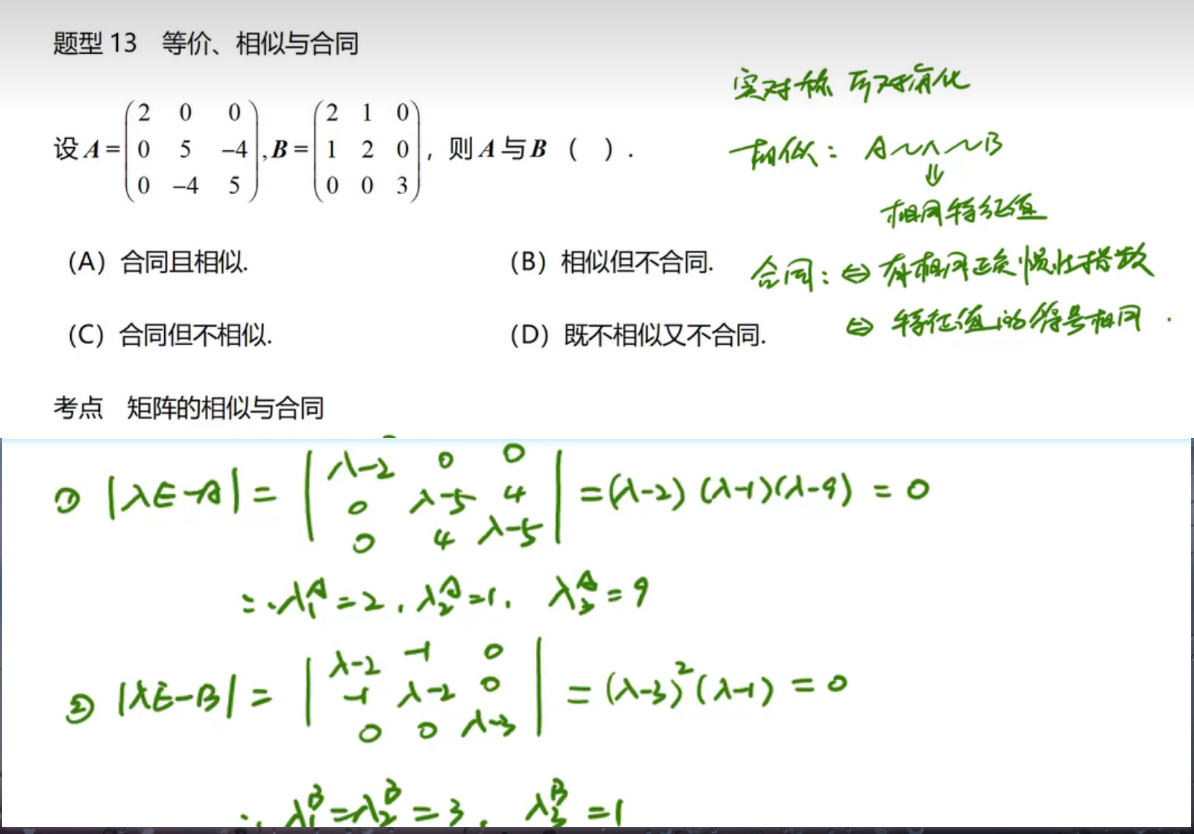 题型 13 等价、相似与合同
设 A = \begin{pmatrix} 2 & 0 & 0 \\ 0 & 5 & -4 \\ 0 & -4 & 5 \end{pmatrix}, B = \begin{pmatrix} 2 & 1 & 0 \\ 1 & 2 & 0 \\ 0 & 0 & 3 \end{pmatrix}, 则 A 与 B ( ).
(A) 合同且相似.
(B) 相似但不合同.
(C) 合同但不相似.
(D) 既不相似又不合同.
考点 矩阵的相似与合同
实对称 可对角化
相似: A ~ Λ ~ B
⇓
相同特征值
合同: ⇔ 有相同正负惯性指数
⇔ 特征值的符号相同.
① |λE-A| = \begin{vmatrix} λ-2 & 0 & 0 \\ 0 & λ-5 & 4 \\ 0 & 4 & λ-5 \end{vmatrix} = (λ-2)(λ-1)(λ-9) = 0
∴ λ_1^A = 2, λ_2^A = 1, λ_3^A = 9
② |λE-B| = \begin{vmatrix} λ-2 & -1 & 0 \\ -1 & λ-2 & 0 \\ 0 & 0 & λ-3 \end{vmatrix} = (λ-3)^2(λ-1) = 0
∴ λ_1^B = λ_2^B = 3, λ_3^B = 1